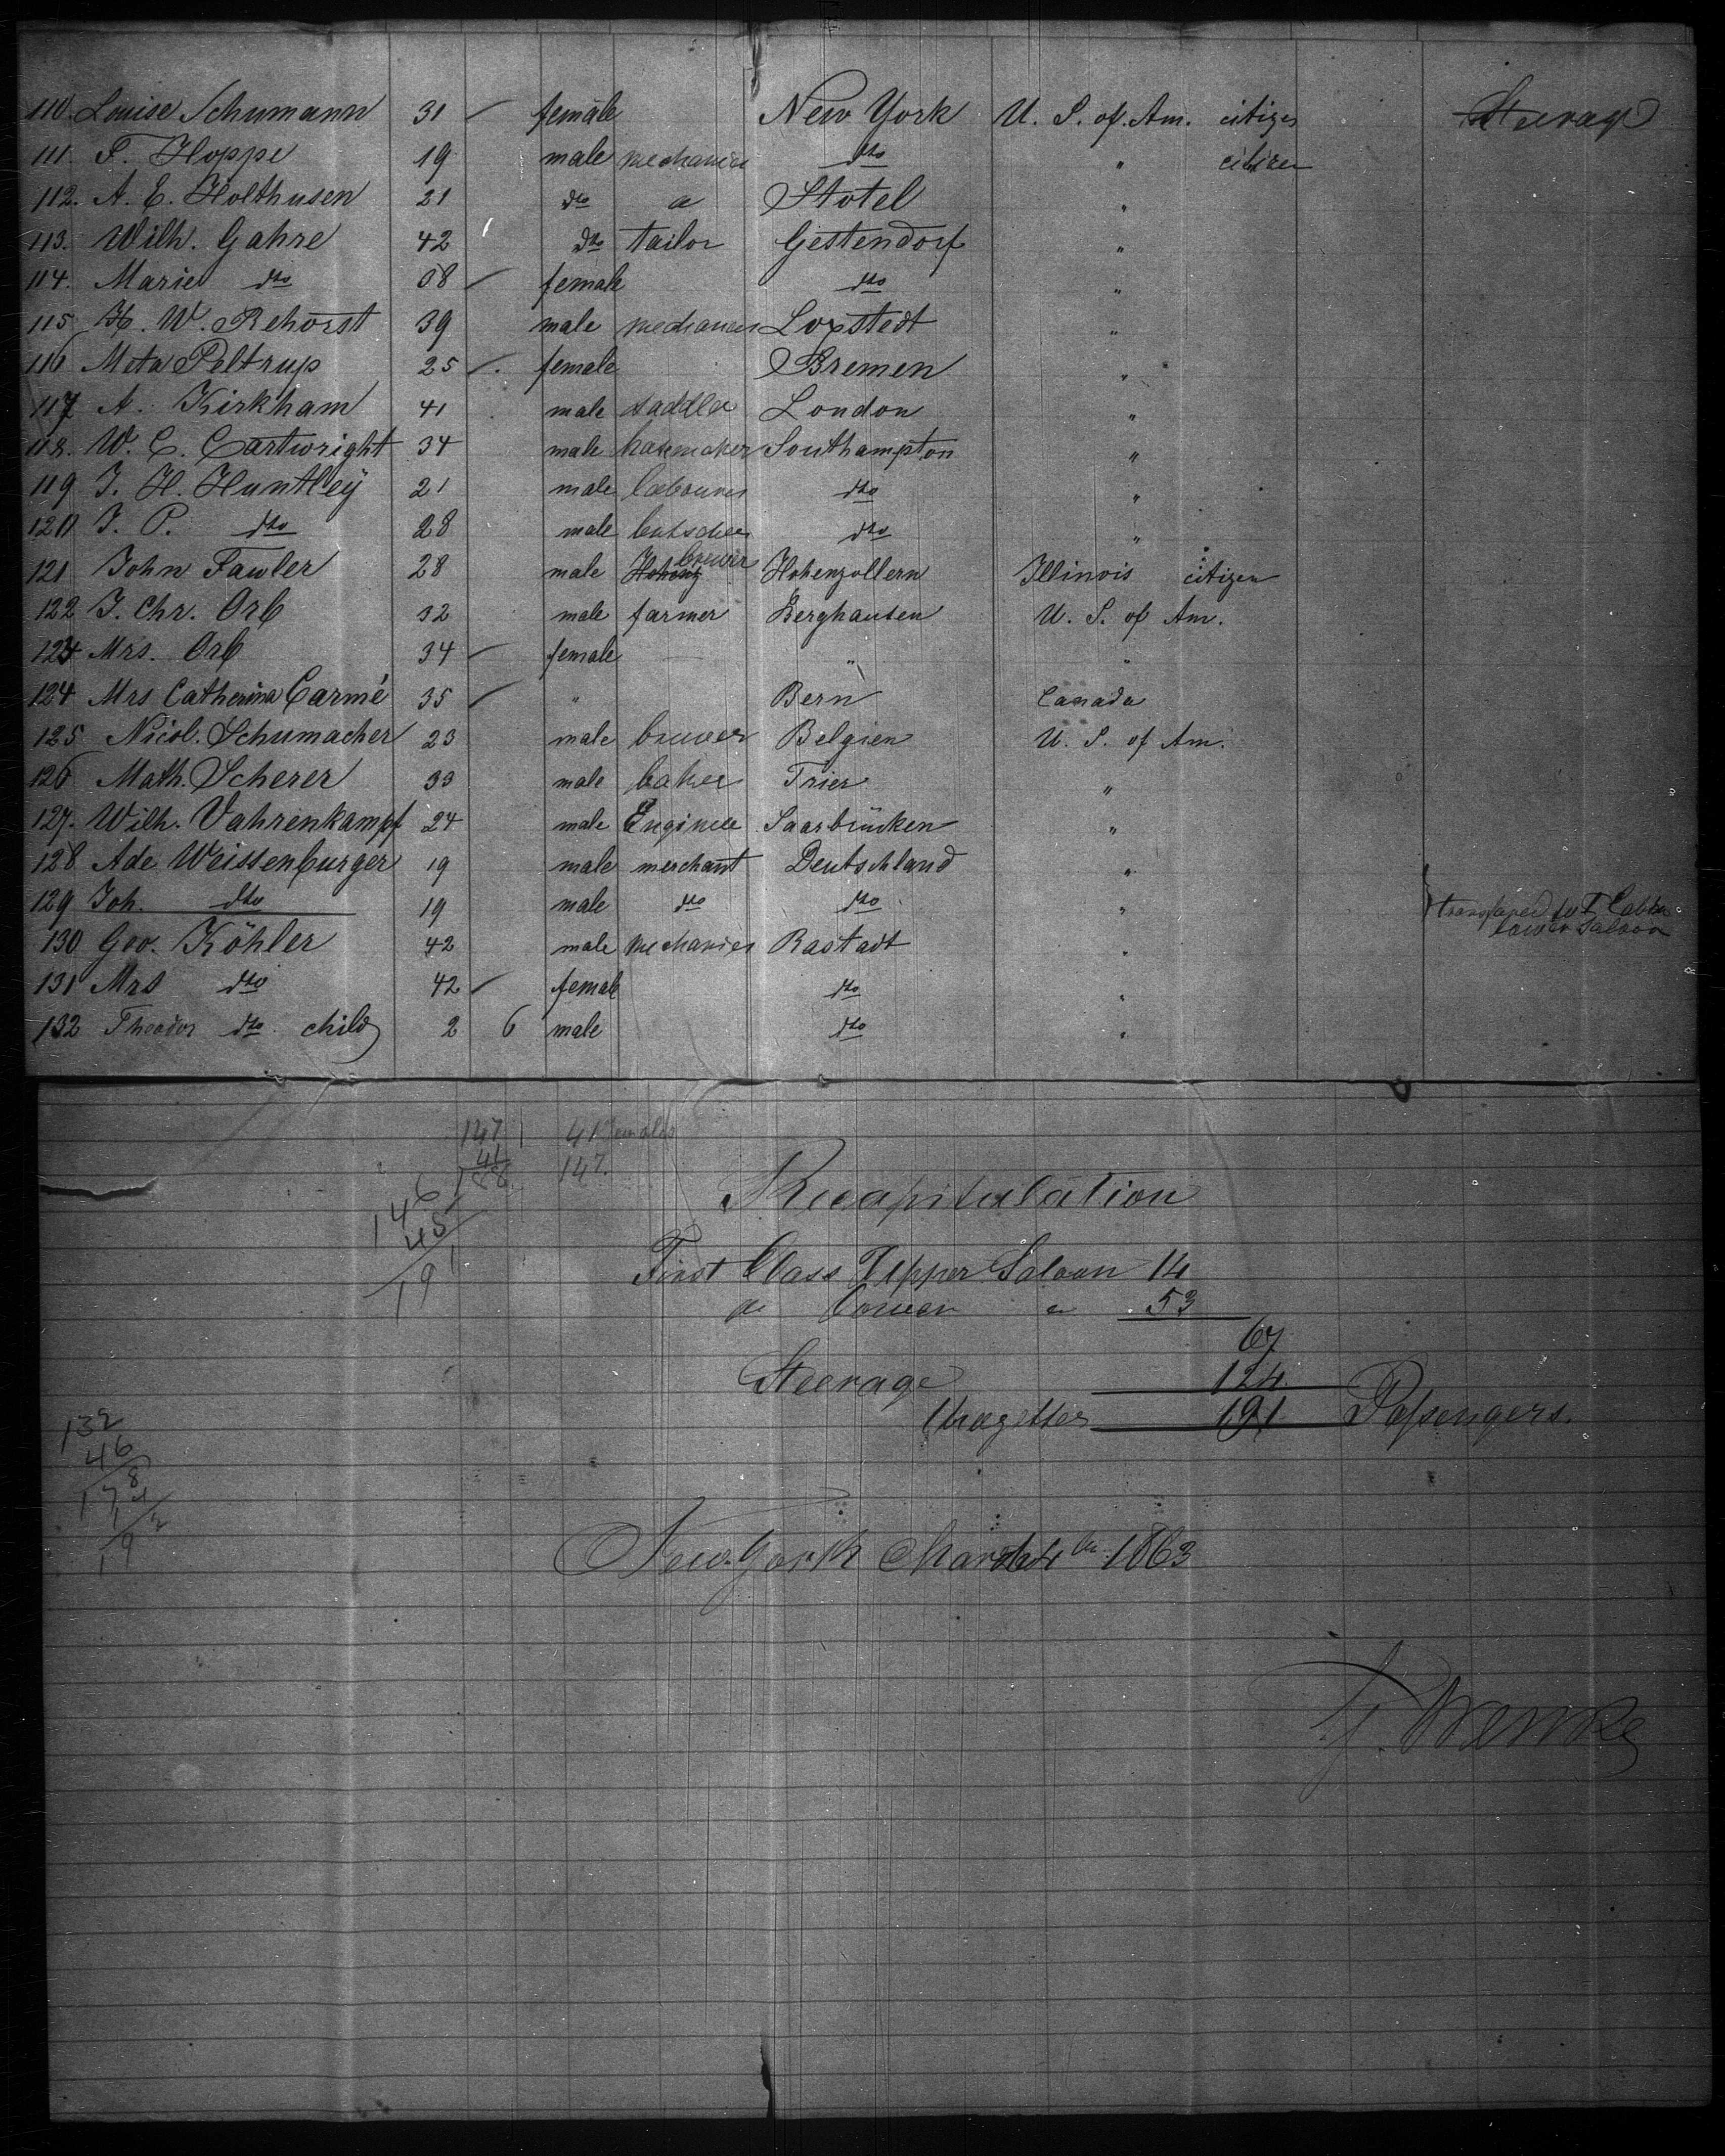 110. Louise Schumann 31 female New York U. S. of. Am. citizen Steerage
111. F. Hoppe 19 male mechanics dto " citizen
112. A. E. Holthusen 21 dto a Stotel "
113. Wilh. Gahre 42 dto tailor Gestendorf "
114. Marie dto 08 female dto "
115 H. W. Rehorst 39 male mechanics Loxstedt "
116 Meta Peltrup 25 female Bremen "
117 A. Kirkham 41 male saddler London "
118. W. C. Cartwright 34 male Southampton "
119 J. H. Huntley 21 male labourer dto "
120 J. P. dto 28 male butscher dto "
121 John Fawler 28 male bruwer Hohenzollern Illinois citizen
122 J. Chr. Orb 32 male farmer Berghausen U. S. of Am.
123 Mrs. Orb 34 female " "
124 Mrs Catherina Carmé 35 " Bern Canada
125 Nicol. Schumacher 23 male bruwer Belgien U. S. of Am.
126 Math. Scherer 33 male baker Trier "
127. Wilh. Vahrenkampf 24 male Enginee Saarbrücken "
128 Ade Weissenburger 19 male merchant Deutschland "
129 Joh. dto 19 male dto dto "
transfered to I Cabin
lower Saloon
130 Geo. Köhler 42 male mechanics Rastadt "
131 Mrs dto 42 female dto "
132 Theodor dto child 2 6 male dto "
147 41 females
41 147.
188
146
45
191
Recapitulation
First Class Upper Saloon 14
a Lower a 53
67
Steerage 124
Altogether 191 Passengers.
132
46
178
New York March 24th 1863